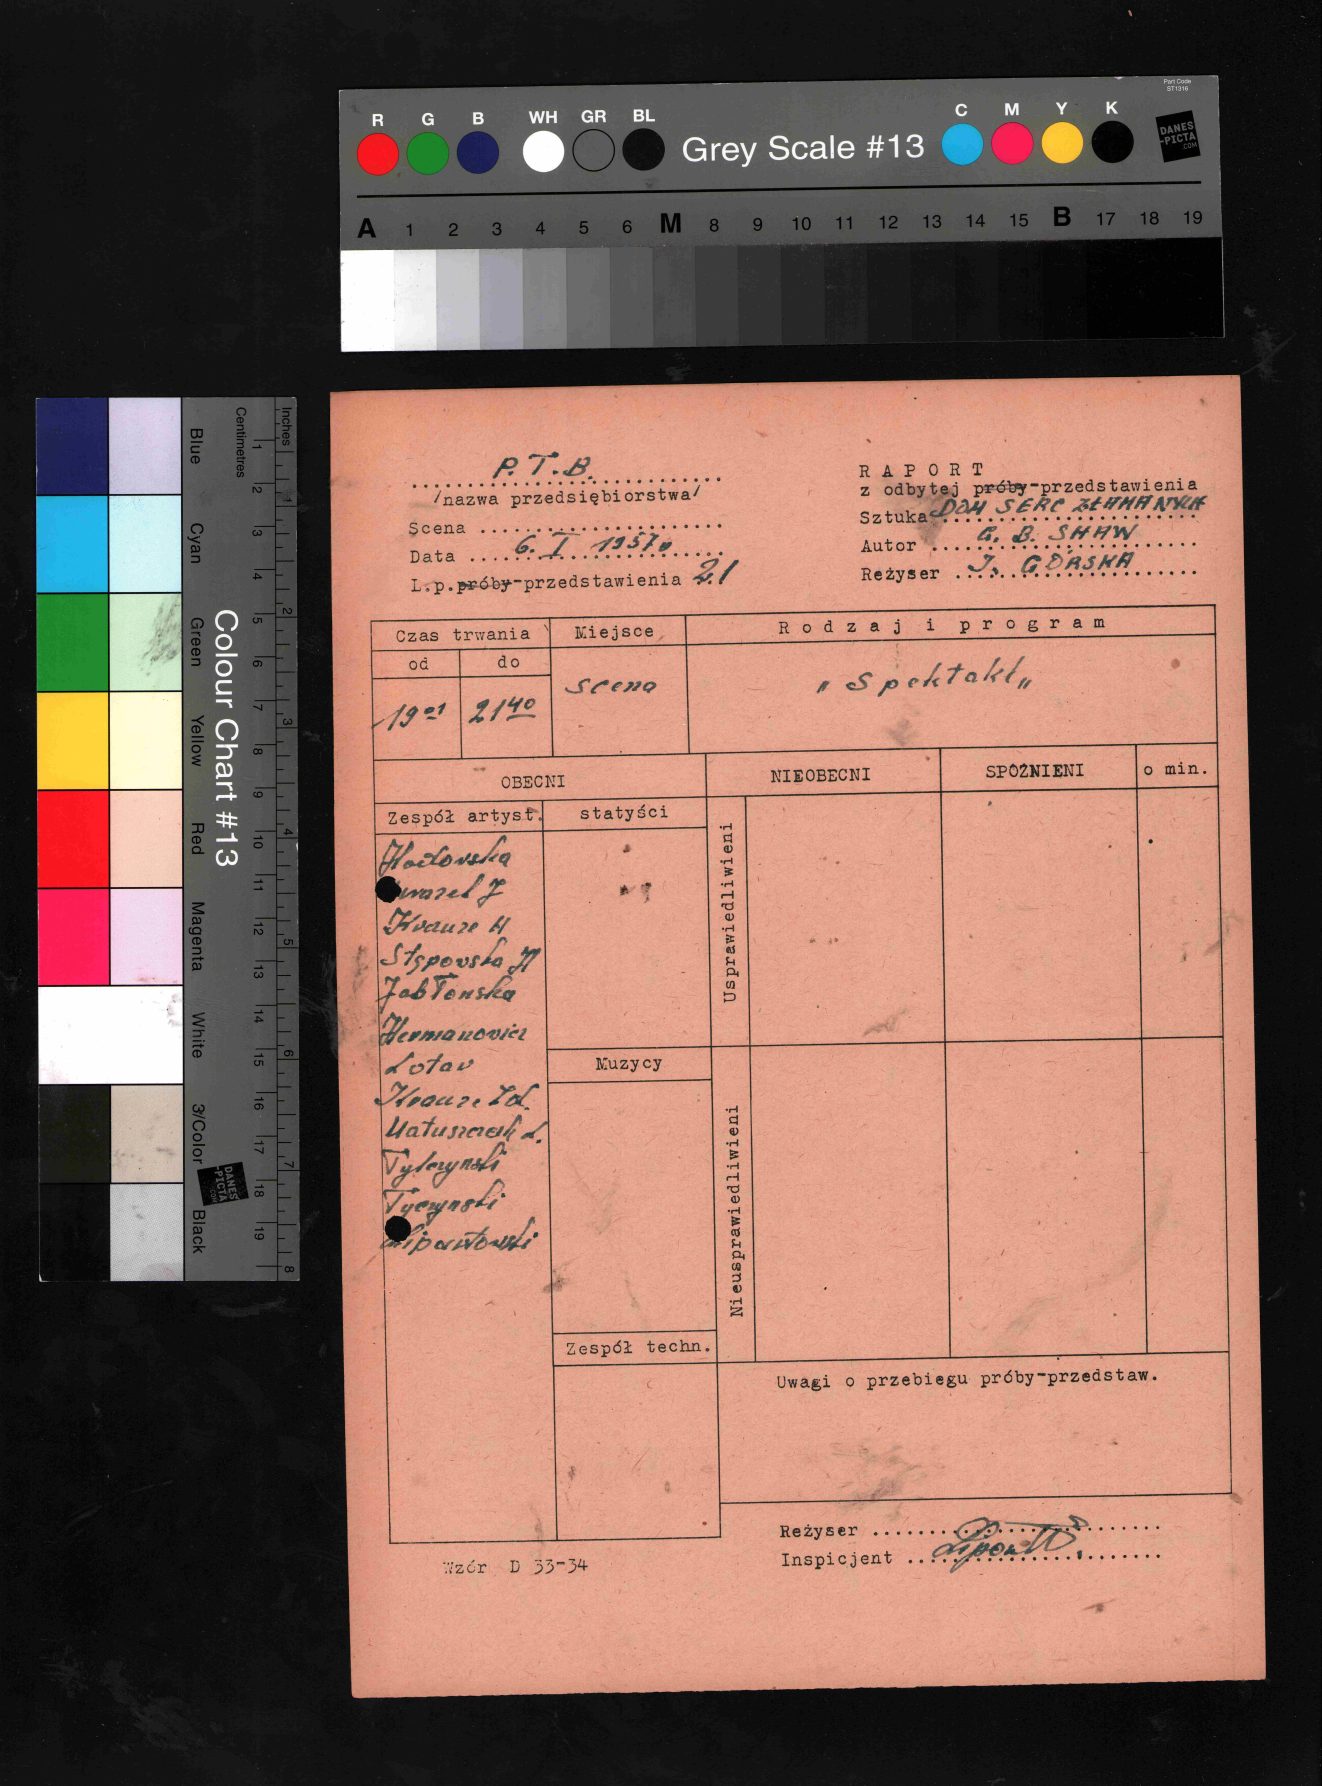 Part Code
ST1316
R G B WH GR BL Grey Scale #13 C M Y K
DANES
-PICTA
.COM
A 1 2 3 4 5 6 M 8 9 10 11 12 13 14 15 B 17 18 19
Inches
Centimetres
Colour Chart #13
Blue
Cyan
Green
Yellow
Red
Magenta
White
3/Color
Black
1 2 3 4 5 6 7 8 9 10 11 12 13 14 15 16 17 18 19
1 2 3 4 5 6 7 8
DANES
-PICTA
.COM
P.T.B.
/nazwa przedsiębiorstwa/
Scena
Data 6. I 1957r
L.p.próby-przedstawienia 21
RAPORT
z odbytej próby-przedstawienia
Sztuka DOM SERC ZŁAMANYCH
Autor G. B. SHAW
Reżyser J. GÓRSKA
Czas trwania
od do
19 01 21 40
Miejsce
scena
Rodzaj i program
„Spektakl„
OBECNI
NIEOBECNI
SPÓŹNIENI
o min.
Zespół artyst.
statyści
Krause H
Stępowska
Jabłońska
Hermanowicz
Lotar
Krauze Zd.
Matuszczak L.
Tylczyński
Tyczyński
Usprawiedliwieni
Muzycy
Nieusprawiedliwieni
Zespół techn.
Uwagi o przebiegu próby-przedstaw.
Reżyser
Inspicjent
Wzór D 33-34